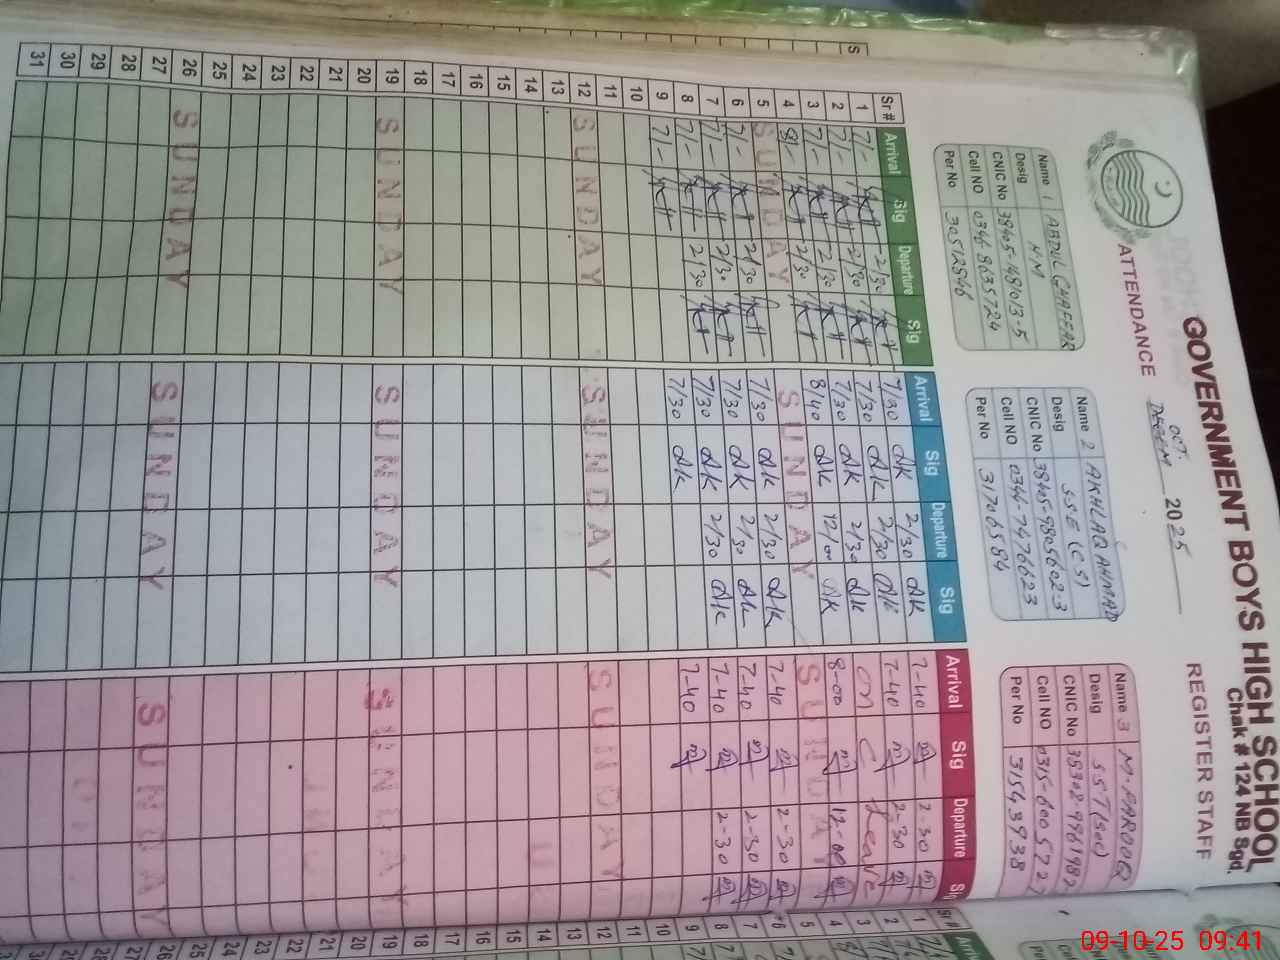 GOVERNMENT BOYS HIGH SCHOOL
Chak # 124 NB Sgd.
ATTENDANCE OCT. 2025 REGISTER STAFF
Name 1 ABDUL GHAFFAR
Desig HM
CNIC No 38405-481013-5
Cell NO 0346-8635724
Per No 30512846
Name 2 AKHLAQ AHMAD
Desig SSE (CS)
CNIC No 38405-9805602-3
Cell NO 0344-7476623
Per No 31706584
Name 3 M. FAROOQ
Desig SST (Sci)
CNIC No
Cell NO
Per No 31543938
Sr # Arrival Sig Departure Sig Arrival Sig Departure Sig Arrival Sig Departure Sig
1 7/- 2/30 7/30 AK 2/30 AK 7-40 2-30
2 7/- 2/30 7/30 AK 2/30 AK 7-40 2-30
3 7/- 2/30 7/30 AK 2/30 AK on C Leave
4 8/- 2/30 8/40 AK 12/00 AK 8-00 12-00
5 SUNDAY SUNDAY SUNDAY
6 7/- 2/30 7/30 AK 2/30 AK 7-40 2-30
7 7/- 2/30 7/30 AK 2/30 AK 7-40 2-30
8 7/- 2/30 7/30 AK 2/30 AK 7-40 2-30
9 7/- 7/30 AK 7-40
10
11
12 SUNDAY SUNDAY SUNDAY
13
14
15
16
17
18
19 SUNDAY SUNDAY SUNDAY
20
21
22
23
24
25
26 SUNDAY SUNDAY SUNDAY
27
28
29
30
31
09-10-25 09:41